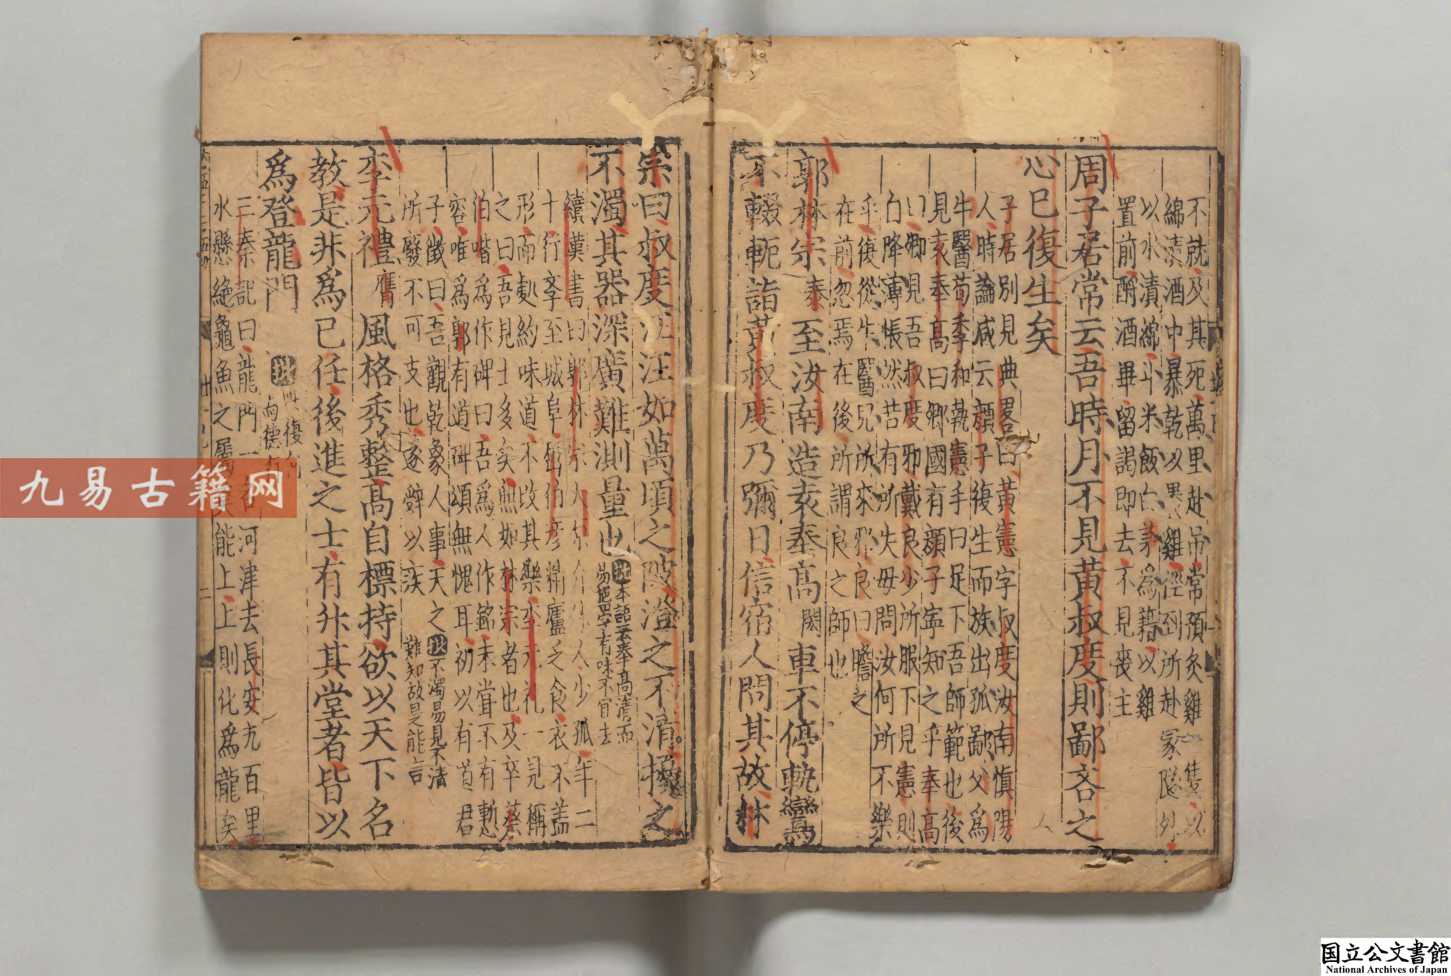 不就及其死萬里赴吊常預炙雞一隻以
綿漬酒中暴乾以裹雞徑到所赴冢隧外
以水漬綿斗米飯白茅為籍以雞
置前酹酒畢留謁即去不見喪主
周子居常云吾時月不見黃叔度則鄙吝之
心已復生矣
子居別見典畧曰黃憲字叔度汝南慎陽
人時論咸云顏子復生而族出孤鄙父為
牛醫荀季和執憲手曰足下吾師範也後
見袁奉高曰卿國有顏子寧知之乎奉高
曰卿見吾叔度邪戴良少所服下見憲則
自降薄悵然若有所失母問汝何所不樂
乎復從牛醫兒所來邪良曰瞻之
在前忽焉在後所謂良之師也
郭林宗泰至汝南造袁奉高閎車不停軌鸞
不輟軛詣黃叔度乃彌日信宿人問其故林
宗曰叔度汪汪如萬頃之陂澄之不清擾之
不濁其器深廣難測量也
續漢書曰郭林宗少孤年二
十行學至城阜屈伯彥精廬乏食衣不蓋
形而處約味道不改其樂李元禮一見稱
之曰吾見士多矣無如林宗者也及卒蔡
伯喈為作碑曰吾為人作銘未嘗不有慙
容唯為郭有道碑頌無愧耳初以有道君
子徵曰吾觀乾象人事天之
所廢不可支也遂辭以疾
不濁易見不清
難知故是能言
李元禮膺風格秀整高自標持欲以天下名
教是非為已任後進之士有升其堂者皆以
為登龍門
三秦記曰龍門一河津去長安九百里
水懸絕龜魚之屬能上上則化為龍矣
九易古籍网
国立公文書館
National Archives of Japan